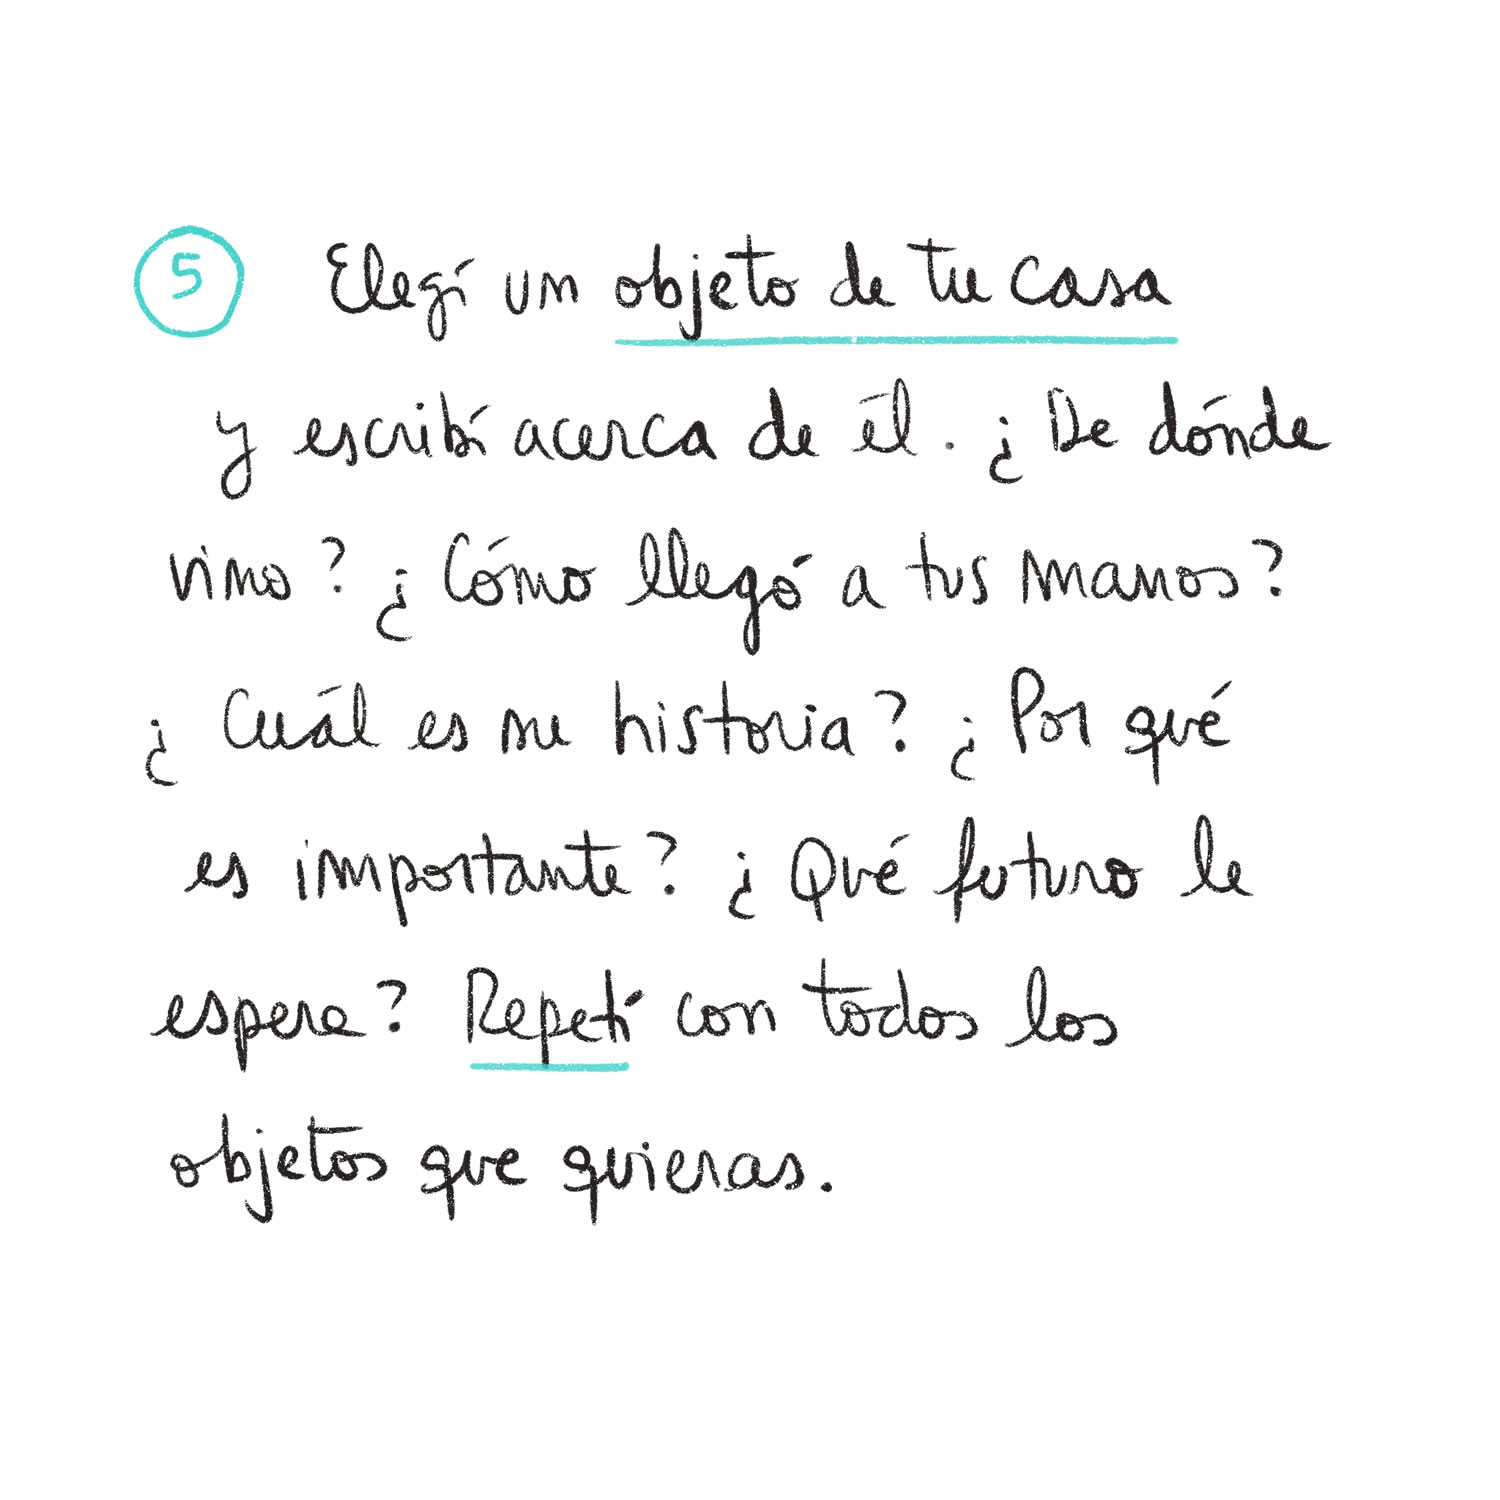 5 Elegí un objeto de tu casa
y escribí acerca de él. ¿De dónde
vino? ¿Cómo llegó a tus manos?
¿Cuál es su historia? ¿Por qué
es importante? ¿Qué futuro le
espera? Repetí con todos los
objetos que quieras.